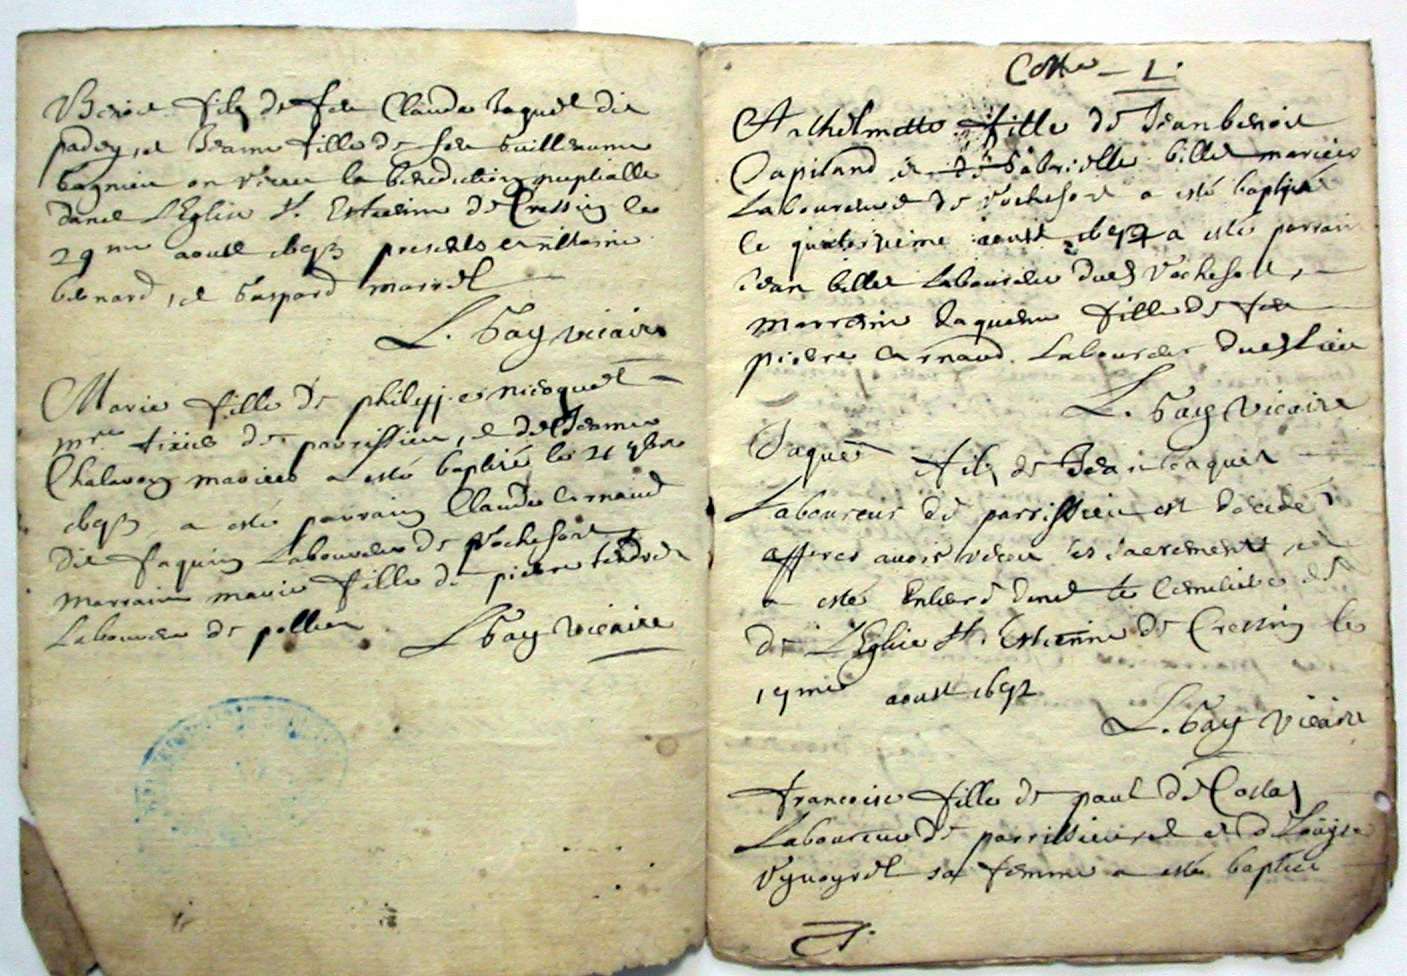 Benoit fils de feu Claude Jaquet dit
padey, et Jeanne fille de feu Guillaume
bagnieu on receu la benediction nuptialle
dans L'Eglise St. Estienne de Cressin le
29me aoust 1693 presents Anthoine
benard, et Gaspard marrel
L. Gay vicaire
Marie fille de philippe nicoquet
mre de parrissieu, et de Jeanne
Chalavon mariées a esté baptisé le 21 9bre
1693 a esté parrain Claude Arnaud
dit Jaquin Laboureur de Rochefort
marraine marie fille de pierre
Laboureur de pollieu L Gay vicaire
Cotte - 1.
Anthelmette fille de Jean benoit
Capitand et de Gabrielle billet mariées
Laboureurs de rochefort a esté baptisée
le quatorzieme aoust 1692 a esté parrain
Jean billet Laboureur dud Rochefort,
marraine Jaquema fille de feu
pierre Arnaud Laboureur dud Lieu
L. Gay Vicaire
Jaques fils de Jean Jaquet
Laboureur de parrissieu est décédé
appres avoir receu les sacrements et
a esté Enterré dans le Cemitiere
de L'Eglise St. Estienne de Cressin le
19me aoust 1692
L. Gay Vicaire
francoise fille de paul de Costaz
Laboureur de parrissieu et d Loüyse
sa femme a esté baptisée